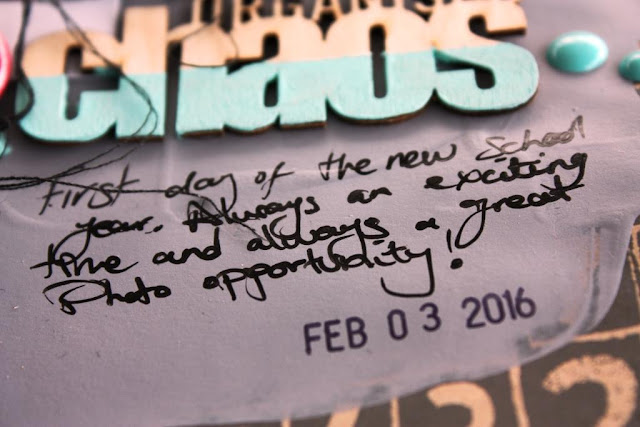 ORGANISED
chaos
First day of the new School
year. Always an exciting
time and always a great
Photo opportunity!
FEB 03 2016
2